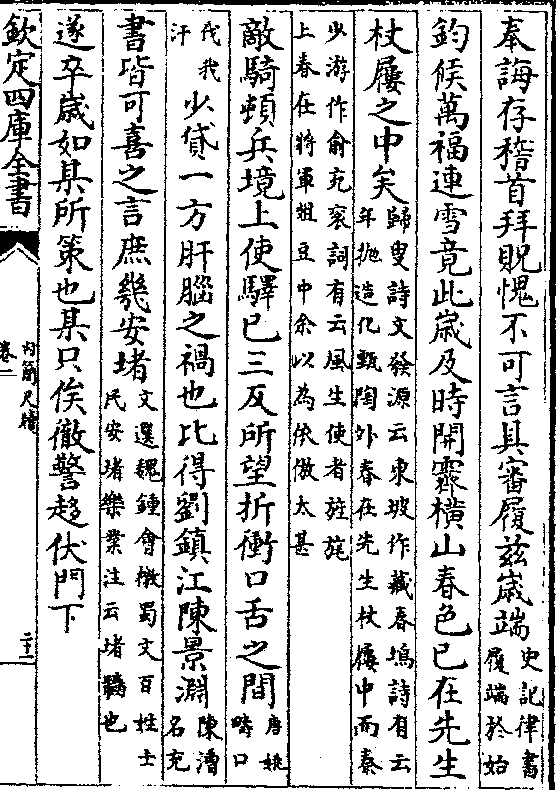 奉誨存稽首拜貺愧不可言具審履兹嵗端史記律書
履端於始
鈞候萬福連雪竟此嵗及時開霽橫山春色已在先生
杖屨之中矣歸叟詩文發源云東坡作藏春塢詩有云
年抛造化甄陶外春在先生杖屨中而秦
少游作俞充哀詞有云風生使者旌旄
上春在將軍俎豆中余以為依倣太甚
敵騎頓兵境上使驛已三反所望折衝口舌之間唐姚
疇口
伐我
汗
少貸一方肝腦之禍也比得劉鎮江陳景淵陳漕
名充
書皆可喜之言庶幾安堵文選魏鍾會檄蜀文百姓士
民安堵樂業注云堵牆也
遂卒嵗如某所策也某只俟徹警趍伏門下
欽定四庫全書
內簡尺牘
卷二
二十二